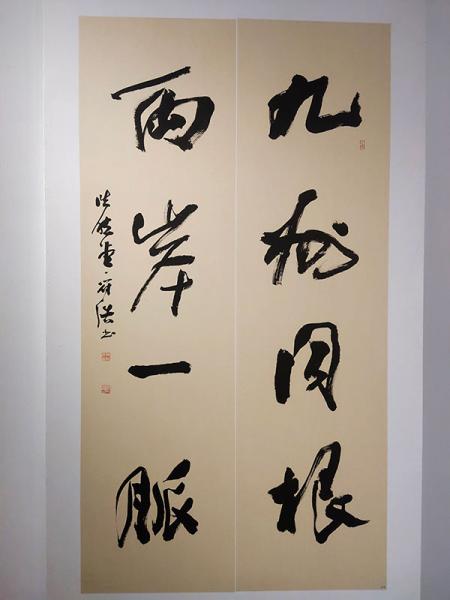 九州同根
两岸一脉